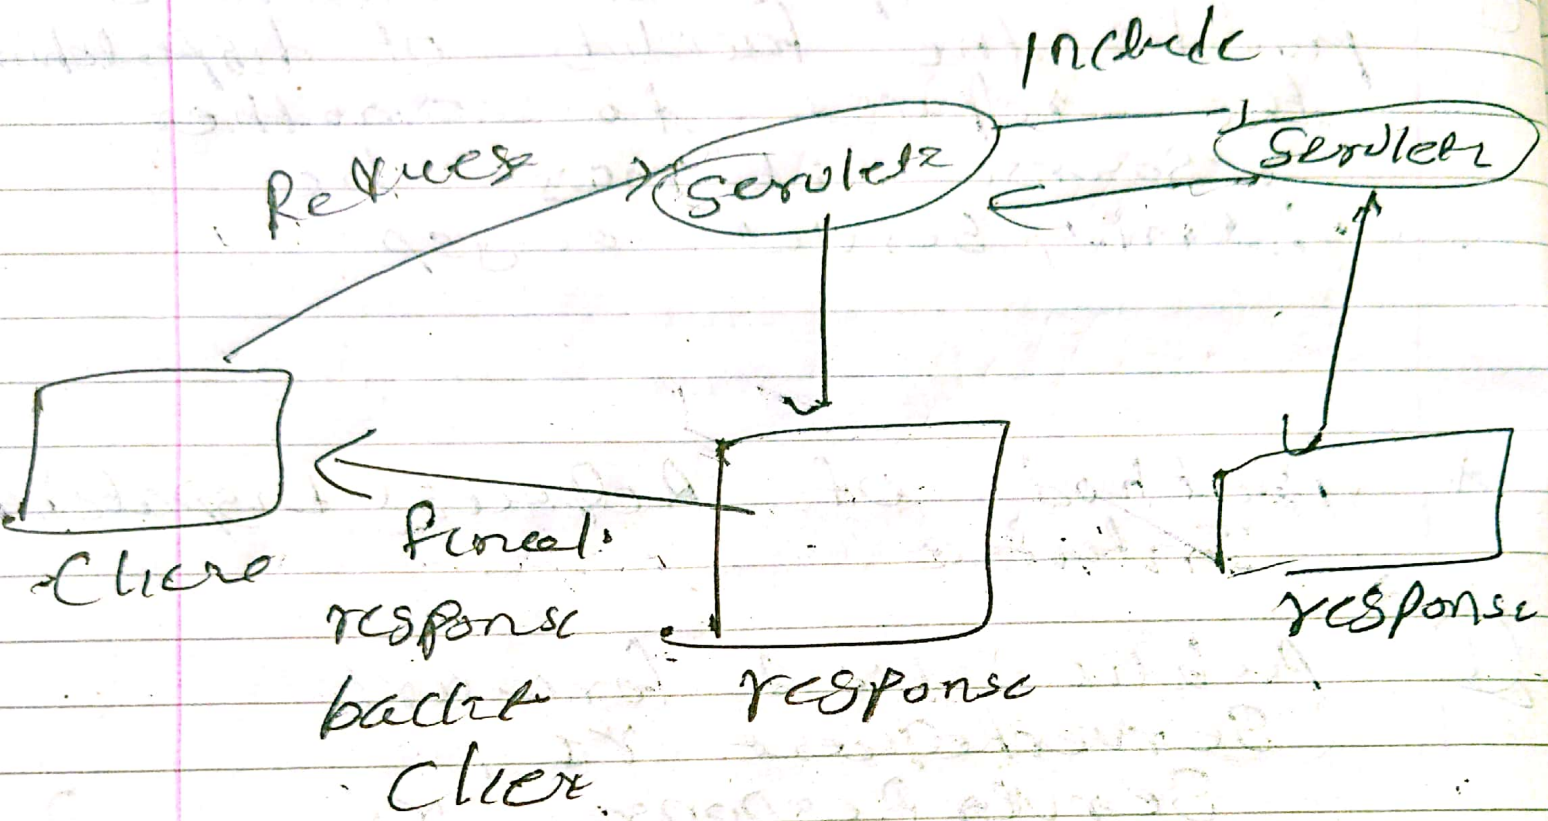 include
Reques
Servlet2
Servlet2
Client
final
response
back
Client
response
response